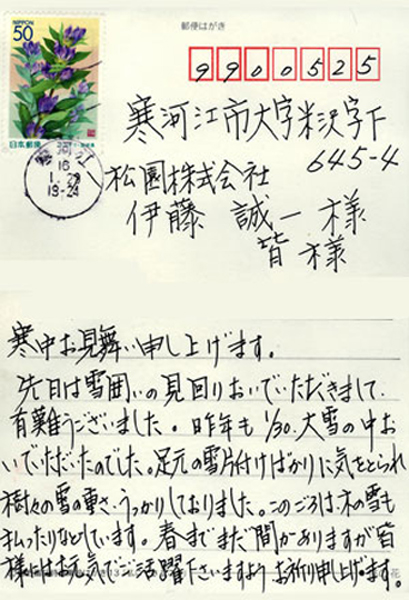 郵便はがき
NIPPON
50
日本郵便
9900525
寒河江市大字米沢字下
645-4
松園株式会社
伊藤 誠一 様
皆様
16
1.29
18-24
寒中お見舞い申し上げます。
先日は雪囲いの見回りおいでいただきまして、
有難うございました。昨年も 1/30.大雪の中お
いでいただいたのでした。足元の雪片付けばかりに気をとられ
樹々の雪の重さ、うっかりしておりました。このごろは木の雪も
払ったりなどしています。春までまだ間がありますが皆
様にはお元気でご活躍下さいますようお祈り申し上げます。